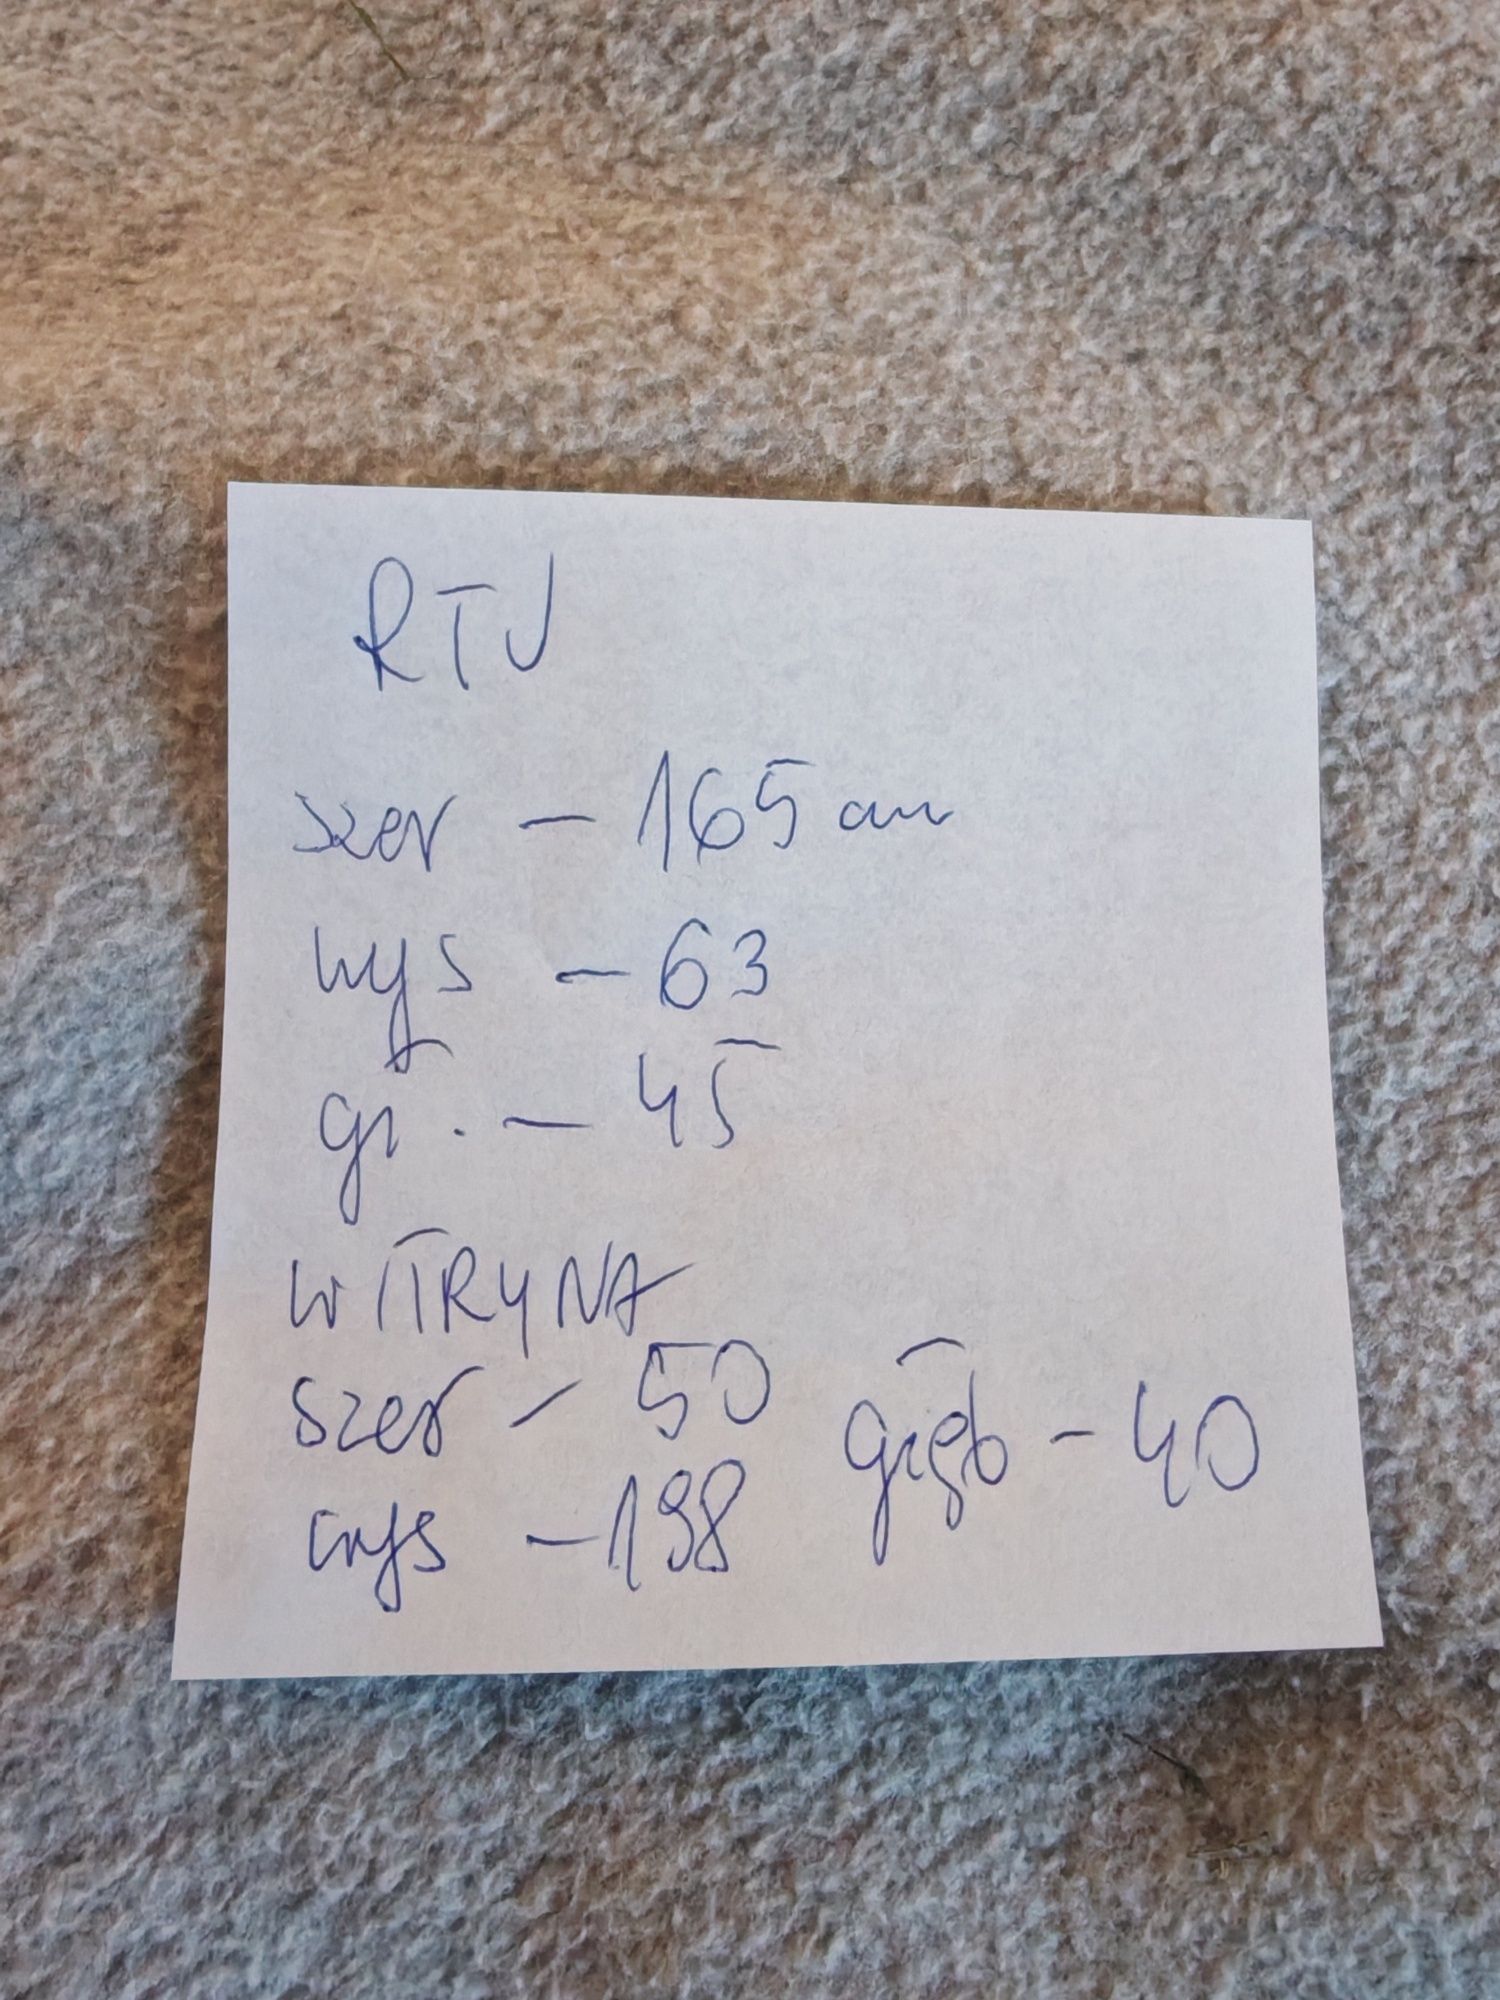 RTV
szer - 165 cm
wys - 63
gł. - 45
WITRYNA
szer - 50 głęb - 40
wys - 198